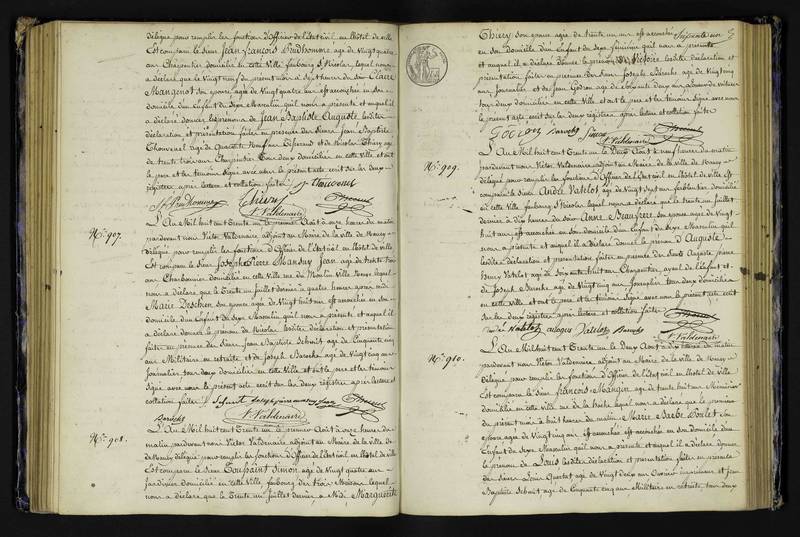 délégué pour remplir les fonctions d'Officier de l'état civil, en l'hôtel de ville
Est comparu le sieur Jean François Prudhomme, agé de Vingt quatre
ans Charpentier domicilié en cette Ville faubourg St Nicolas, lequel nous
a déclaré que le Vingt neuf du présent mois à sept heures du soir Claire
Mangenot son épouse agée de Vingt quatre ans est accouchée en son
domicile d'un Enfant du Sexe Masculin qu'il nous a présenté et auquel il
a déclaré donner les prénoms de Jean Baptiste Auguste, lesdites
déclaration et présentation faites en présence des Sieurs Jean Baptiste
Thouvenel agé de quarante neuf ans Tisserand et de Nicolas Thiery agé
de trente trois ans Charpentier tous deux domiciliés en cette Ville et ont
le père et les témoins signé avec nous le présent acte écrit sur les deux
registres après lecture et collation faites
Prudhomme Thiery Thouvenel
V. Valdenaire
N° 907.
L'An Mil huit cent Trente un le premier Août à onze heures du matin
pardevant nous Victor Valdenaire adjoint au Maire de la ville de Nancy
délégué pour remplir les fonctions d'Officier de l'état civil en l'hôtel de ville
Est comparu le sieur Joseph Pierre Mansuy Jean agé de trente
ans Charbonnier domicilié en cette Ville rue du Moulin Ville Neuve lequel
nous a déclaré que le Trente un Juillet dernier à quatre heures
Marie Deschien son épouse agée de Vingt huit ans est accouchée en son
domicile d'un Enfant du Sexe Masculin qu'il nous a présenté et auquel il
a déclaré donner le prénom de Nicolas lesdites déclaration et présentation
faites en présence des Sieurs Jean Baptiste Schmit agé de Cinquante cinq
ans Militaire en retraite et de Joseph Baroche agé de Vingt cinq ans
Journalier tous deux domiciliés en cette Ville et ont le père et les témoins
signé avec nous le présent acte écrit sur les deux registres après lecture et
collation faites
Baroche V. Valdenaire
N° 908.
L'An Mil huit cent Trente un le premier Août à onze heures du
matin pardevant nous Victor Valdenaire adjoint au Maire de la ville
de Nancy délégué pour remplir les fonctions d'Officier de l'état civil en l'hôtel de ville
Est comparu le Sieur Toussaint Simon agé de Vingt quatre ans
Jardinier domicilié en cette Ville faubourg des trois Maisons lequel
nous a déclaré que le Trente un Juillet dernier à Midi, Marguerite
Thiery son épouse agée de trente un ans est accouchée
en son domicile d'un Enfant du Sexe féminin qu'il nous a présenté
et auquel il a déclaré donner le prénom de Victoire lesdites déclaration et
présentation faites en présence des Sieurs Joseph Baroche agé de Vingt cinq
ans Journalier et de Jean
tous deux domiciliés en cette Ville et ont le père et les témoins signé avec nous
le présent acte écrit sur les deux registres après lecture et collation faites
Baroche Simon
V. Valdenaire
N° 909.
L'An Mil huit cent Trente un le Deux Août à neuf heures du matin
pardevant nous Victor Valdenaire adjoint au Maire de la ville de Nancy
délégué pour remplir les fonctions d'Officier de l'état civil en l'hôtel de ville est
comparu le Sieur André Vatelot agé de Vingt sept ans ferblantier domicilié
en cette Ville faubourg St Nicolas lequel nous a déclaré que le trente un Juillet
dernier à dix heures du soir Anne Beaufrere son épouse agée de Vingt
huit ans est accouchée en son domicile d'un Enfant du Sexe Masculin qu'il
nous a présenté et auquel il a déclaré donner le prénom d'Auguste
lesdites déclaration et présentation faites en présence des Sieurs Auguste Pierre
Henry Vatelot agé de Soixante huit ans Charpentier, ayeul de l'enfant et
de Joseph Baroche agé de Vingt cinq ans Journalier tous deux domiciliés
en cette ville et ont le père et les témoins signé avec nous le présent acte écrit
sur les deux registres après lecture et collation faites
André Vatelot auguste Vatelot Baroche
V. Valdenaire
N° 910.
L'An Mil huit cent Trente un le Deux Août à dix heures du matin
pardevant nous Victor Valdenaire adjoint au Maire de la ville de Nancy
délégué pour remplir les fonctions d'Officier de l'état civil en l'hôtel de ville
Est comparu le Sieur François Mangin agé de trente huit ans Menuisier
domicilié en cette Ville rue de la hache lequel nous a déclaré que le premier
du présent mois à huit heures du matin Marie Barbe Poulet son
épouse agée de Vingt cinq ans est accouchée en son domicile d'un
Enfant du Sexe Masculin qu'il nous a présenté et auquel il a déclaré donner
le prénom de Louis lesdites déclaration et présentation faites en présence
des Sieurs Léon Quartat agé de Vingt deux ans Ouvrier imprimeur et Jean
Baptiste Schmit agé de Cinquante cinq ans Militaire en retraite, tous deux